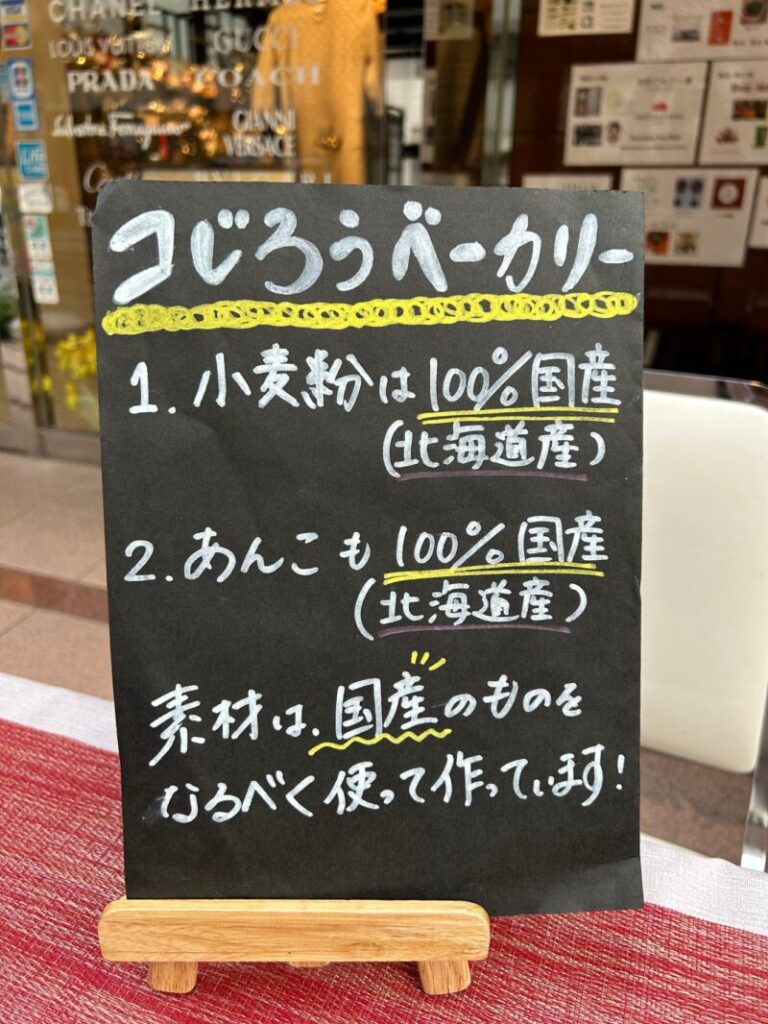 CHANEL
LOUIS VUITTON GUCCI
PRADA COACH
Salvatore Ferragamo GIANNI
VERSACE
コじろうベーカリー
1. 小麦粉は100%国産
(北海道産)
2. あんこも100%国産
(北海道産)
素材は、国産のものを
なるべく使って作っています!